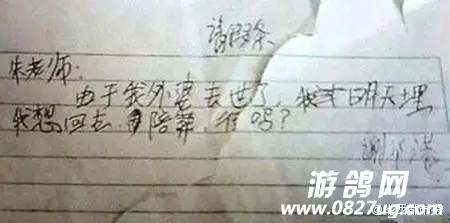 请假条
朱老师:
由于我外婆去世了,我 明天埋
我想回去 陪葬,行吗?
游鸽网
www.0827ug.com